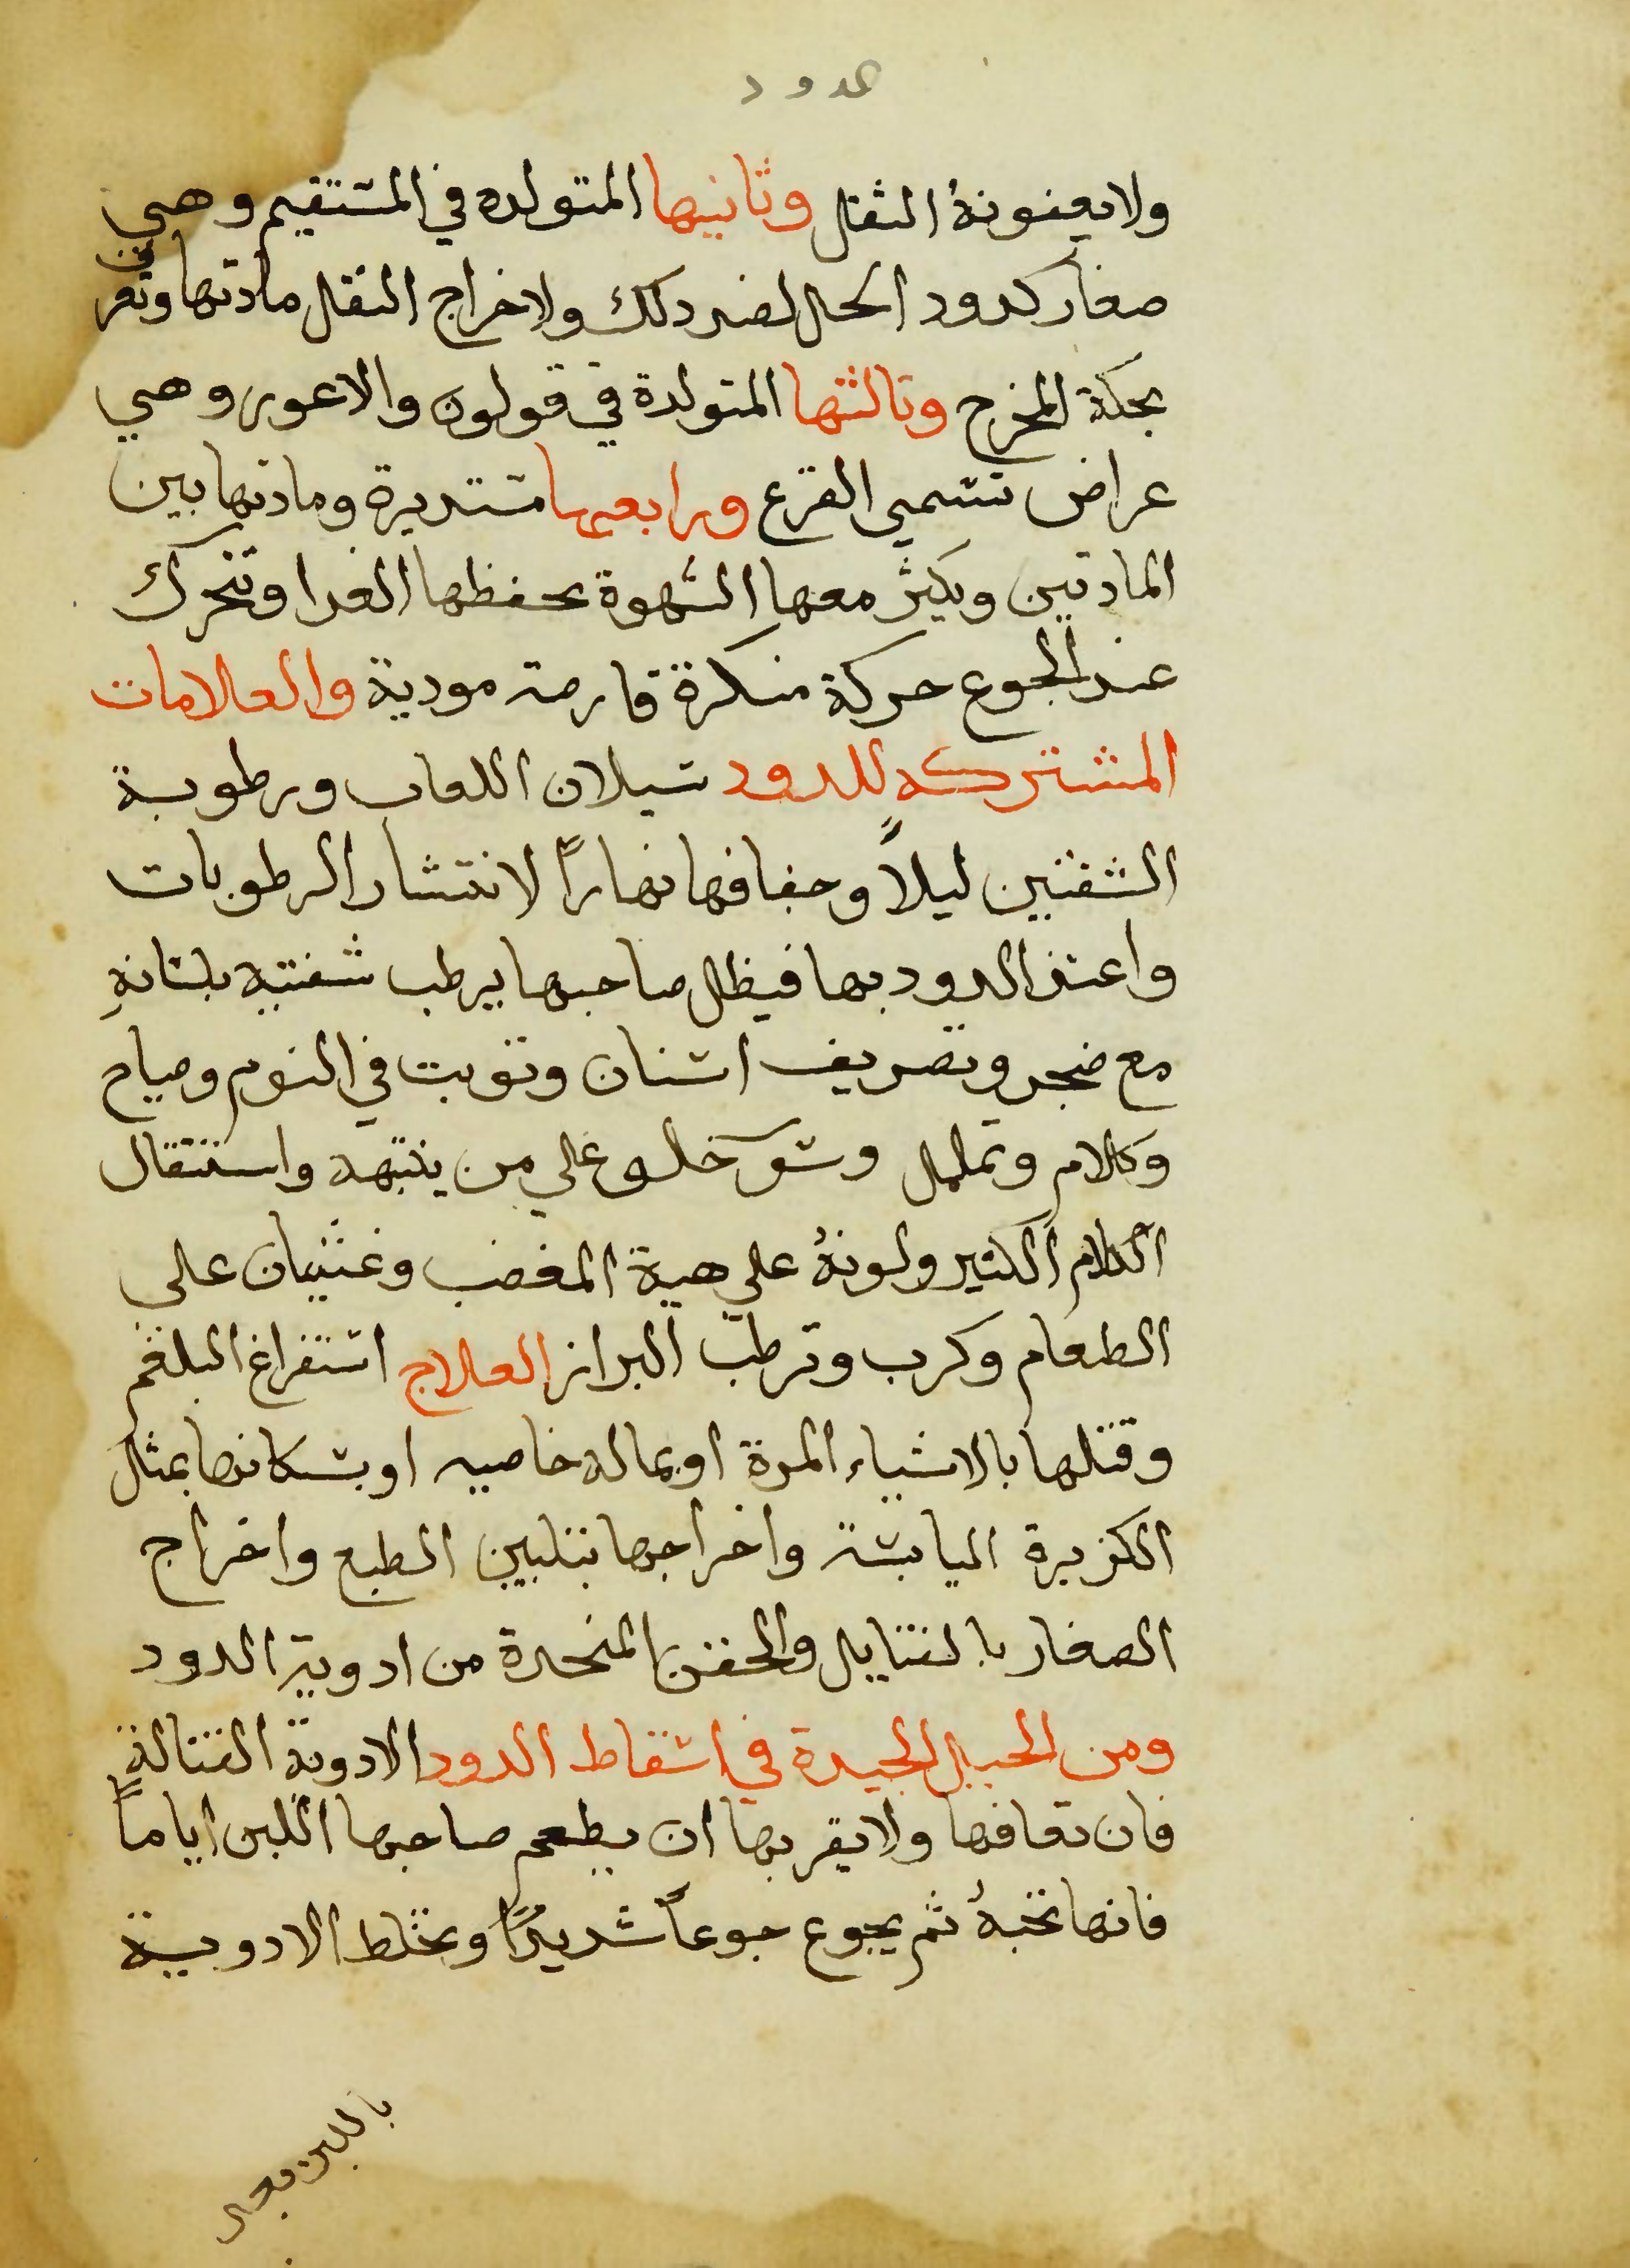 الدود
ولا بعفونة الثقل وثانيها المتولده في المستقيم وهي
صغار كدود الخل لضد دلك ولاخراج الثقل مادتها وتعرف
بحكة المخرج وثالثتها المتولدة في قولون والاعور وهي
عراض تسمي القرع ورابعها مستديرة ومادتها بين
المادتين ويكثر معها الشهوة بحفظها الغدا وتتحرك
عند الجوع حركة منكرة قارصة مودية والعلامات
المشتركه للدود سيلان اللعاب ورطوبة
الشفتين ليلاً وجفافها نهاراً لانتشار الرطوبات
واعتدا الدود بها فيظل صاحبها يرطب شفتيه بلسانهِ
مع ضجر وتصريف اسنان وتوبت في النوم وصياح
وكلام وتململ وسو خلق علي من ينبهه واستثقال
الكلام الكثير ولونهُ علي هية المغضب وغثيان علي
الطعام وكرب وترطب البراز العلاج استفراغ البلغم
وقتلها بالاشياء المرة او بماله خاصيه او بسكانها بمثل
الكزبرة اليابسة واخراجها بتليين الطبع واخراج
الصغار بالفتايل والحقن المتخدة من ادوية الدود
ومن الحيل الجيدة في اسقاط الدود الادوية القتالة
فان تعافها ولا يقربها ان يطعم صاحبها اللبن اياماً
فانها تحبهُ ثم يجوع جوعاً شديدًا ويخلط الادوية
باللبن بعد